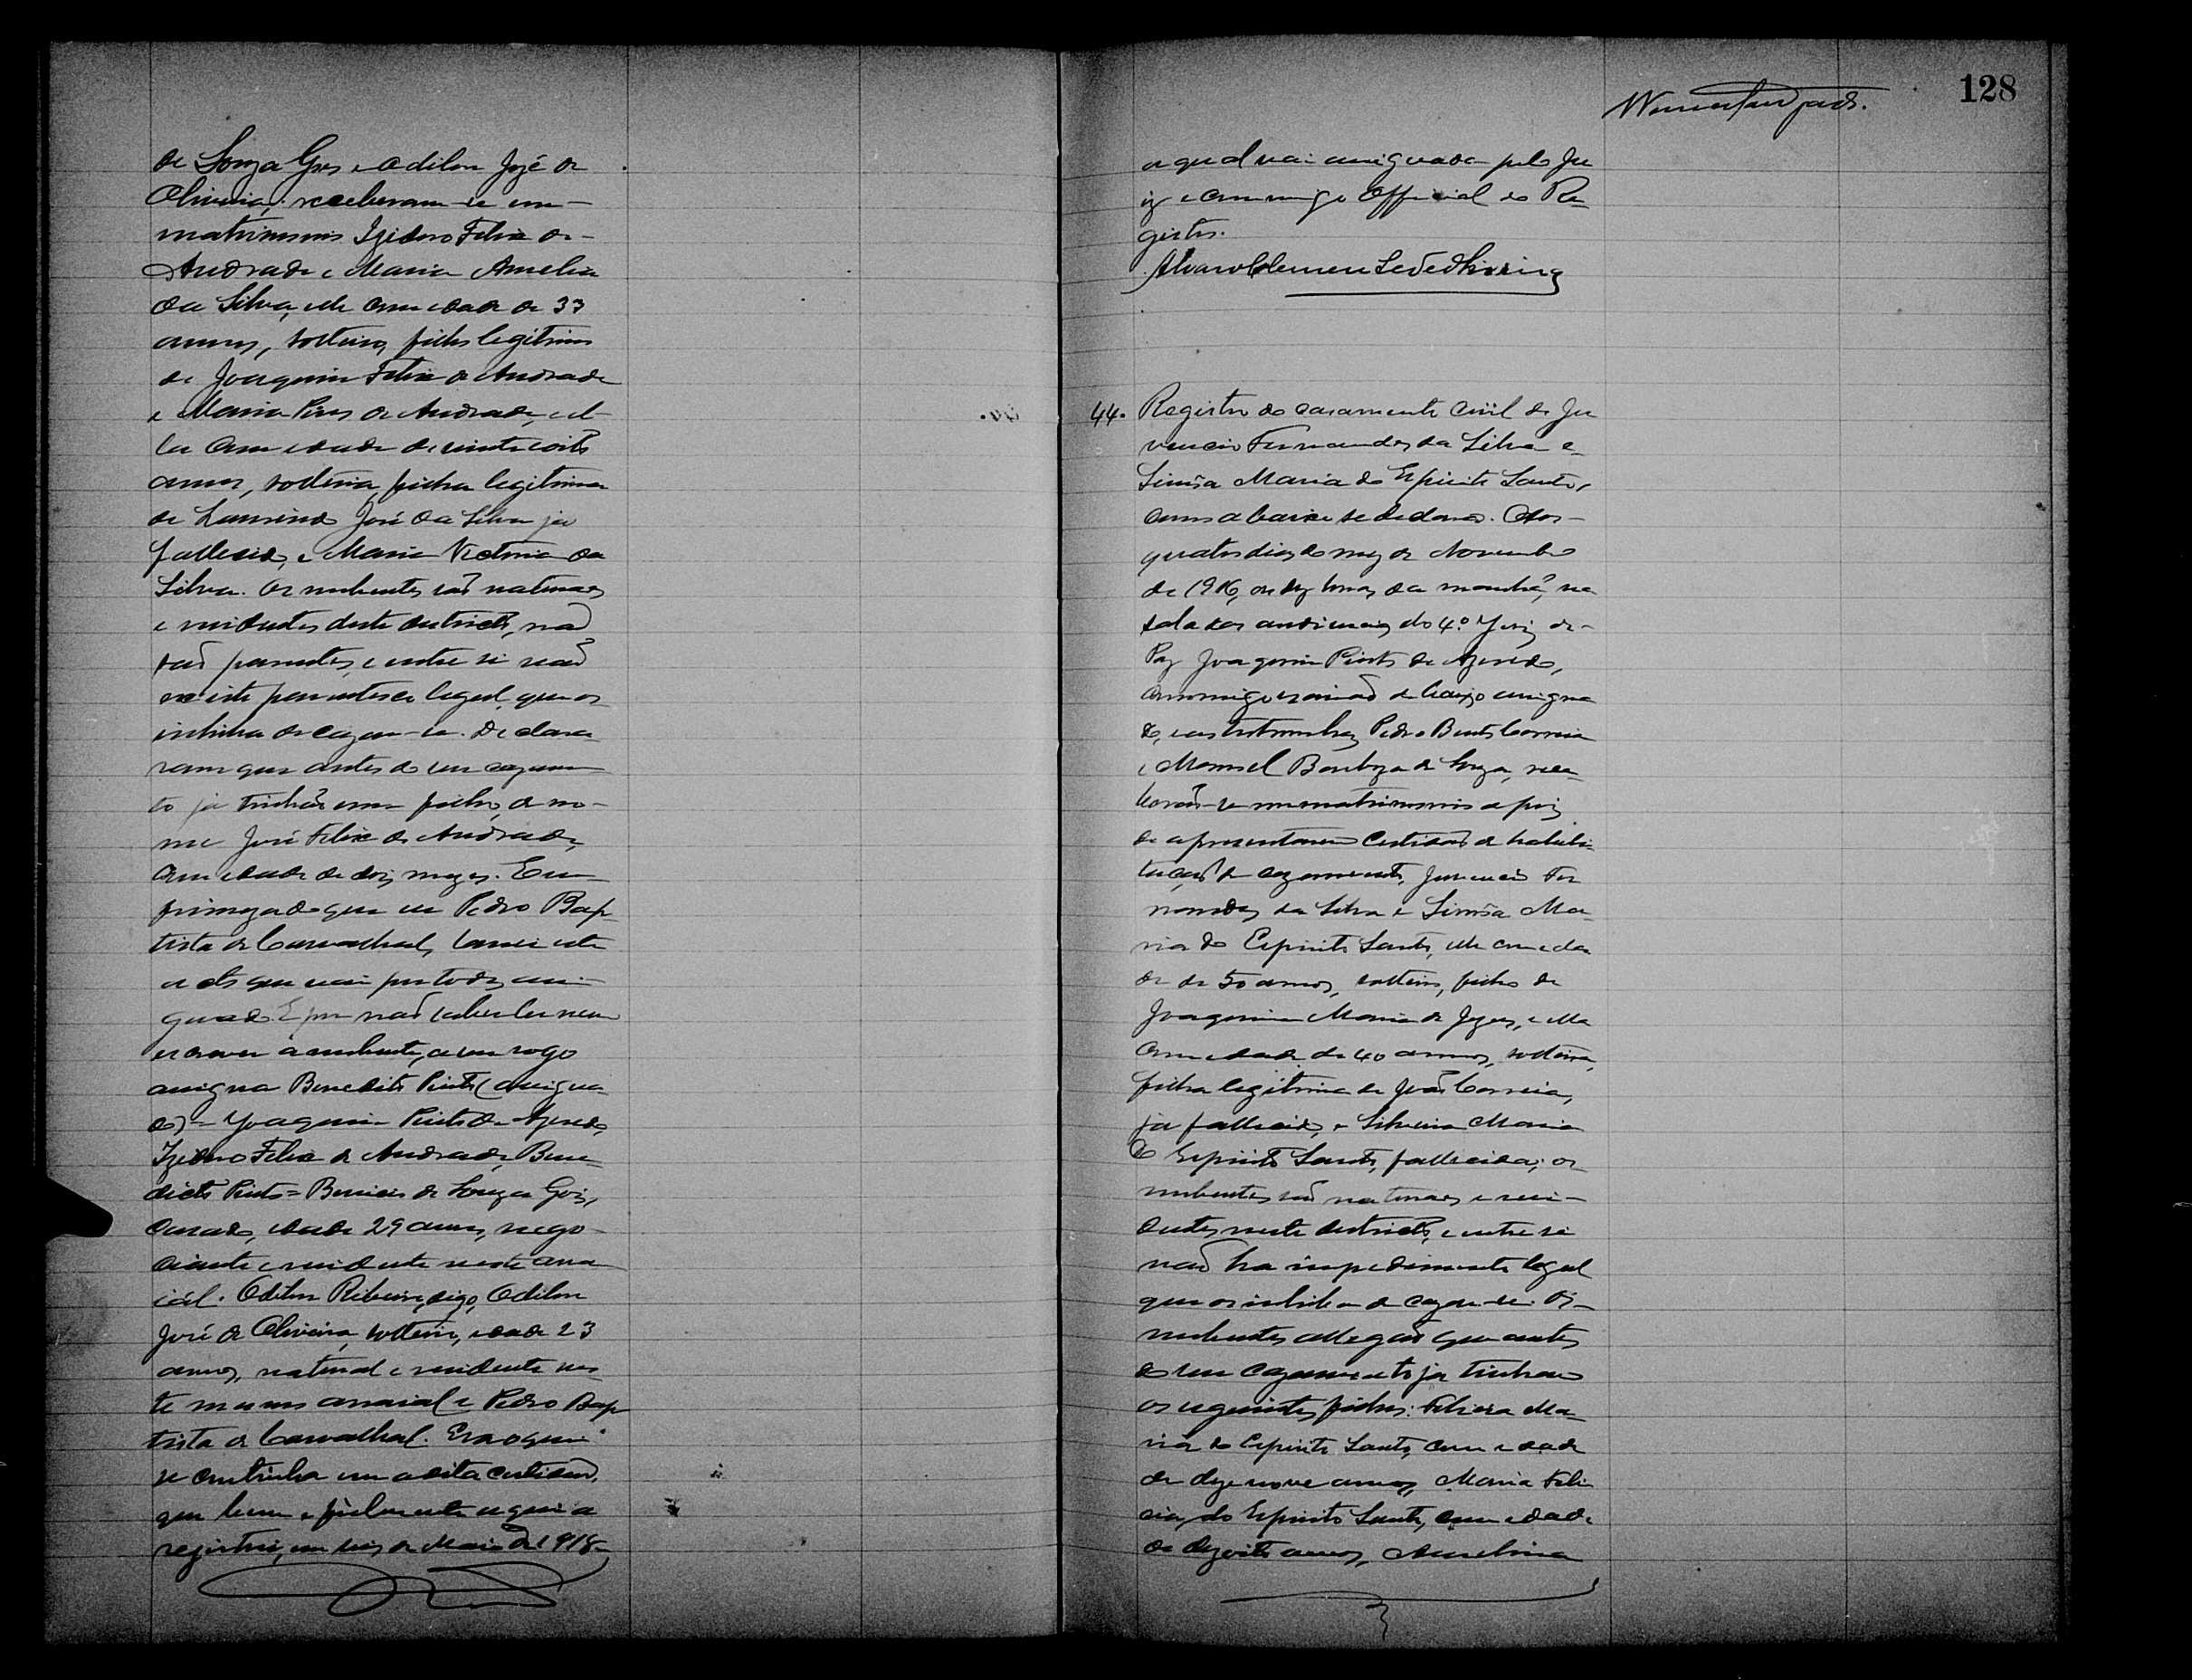 de Souza Goes e Odilon José de
Oliveira; receberam-se em
matrimonio Izidoro Felix de
Andrade e Maria Amelia
da Silva, elle com edade de 33
annos, solteiro, filho legitimo
de Joaquim Felix de Andrade
e Maria Pires de Andrade, el-
la com edade de vinte e oito
annos, solteira, filha legitima
de Laurindo José da Silva já
fallecido, e Maria Victoria da
Silva. Os nubentes são naturaes
e residentes deste districto, não
são parentes, e entre si não
existe parentesco legal, que os
inhiba de cazar-se. Declara-
ram que antes do seu cazamen
to já tinhão um filho, de no-
me José Felix de Andrade,
com edade de dois mezes. Em
firmeza do que eu Pedro Bap
tista de Carvalhal, lavrei este
acto que vai por todos assi-
gnado. E por não saber ler nem
escrever a nubente, a seu rogo
assigna Benedicto Pinto (assigna-
do) = Joaquim Pinto de Azevedo,
Izidoro Felix de Andrade, Bene-
dicto Pinto = de Souza Goes,
casado, edade 29 annos, nego-
ciante e residente neste arra
ial. Odilon Ribeiro, digo, Odilon
José de Oliveira, solteiro, edade 23
annos, natural e residente nes-
te mesmo arraial e Pedro Bap
tista de Carvalhal. Era o que
se continha em a dita certidão,
que bem e fielmente aqui a
registrei, em seis de Maio de 1918
128
a qual vai assignada pelo Ju
iz e commigo Official do Re-
gistro.
44. Registro do casamento Civil de Ju
vencio Fernandes da Silva e
Simôa Maria do Espirito Santo,
como abaixo se declara. Aos
quatro dias do mez de Novembro
de 1916, as dez horas da manhã, na
sala das audiencias do 4º Juiz de
Paz Joaquim Pinto de Azevedo,
commigo escrivão abaixo assigna
do, e as testemunhas Pedro Bento Correia
e Manoel Barboza de Souza, rece-
berão-se em matrimonio depois
de apresentarem Certidão de habili-
tação de cazamento, Juvencio Fer
nandes da Silva e Simôa Ma-
ria do Espirito Santo, elle com eda-
de de 50 annos, solteiro, filho de
Joaquina Maria de Jezus, e ella
com edade de 40 annos, solteira,
filha legitima de João Correia,
já fallecido, e Silveria Maria
do Espirito Santo, fallecida; os
nubentes são naturaes e resi-
dentes neste districto, e entre si
não ha impedimento legal
que os inhiba de cazar-se. Os
nubentes allegão que antes
do seu cazamento já tinhão
os seguintes filhos: Ma-
ria do Espirito Santo, com edade
de dezenove annos, Maria Feli
cia do Espirito Santo, com edade
de dezoito annos,